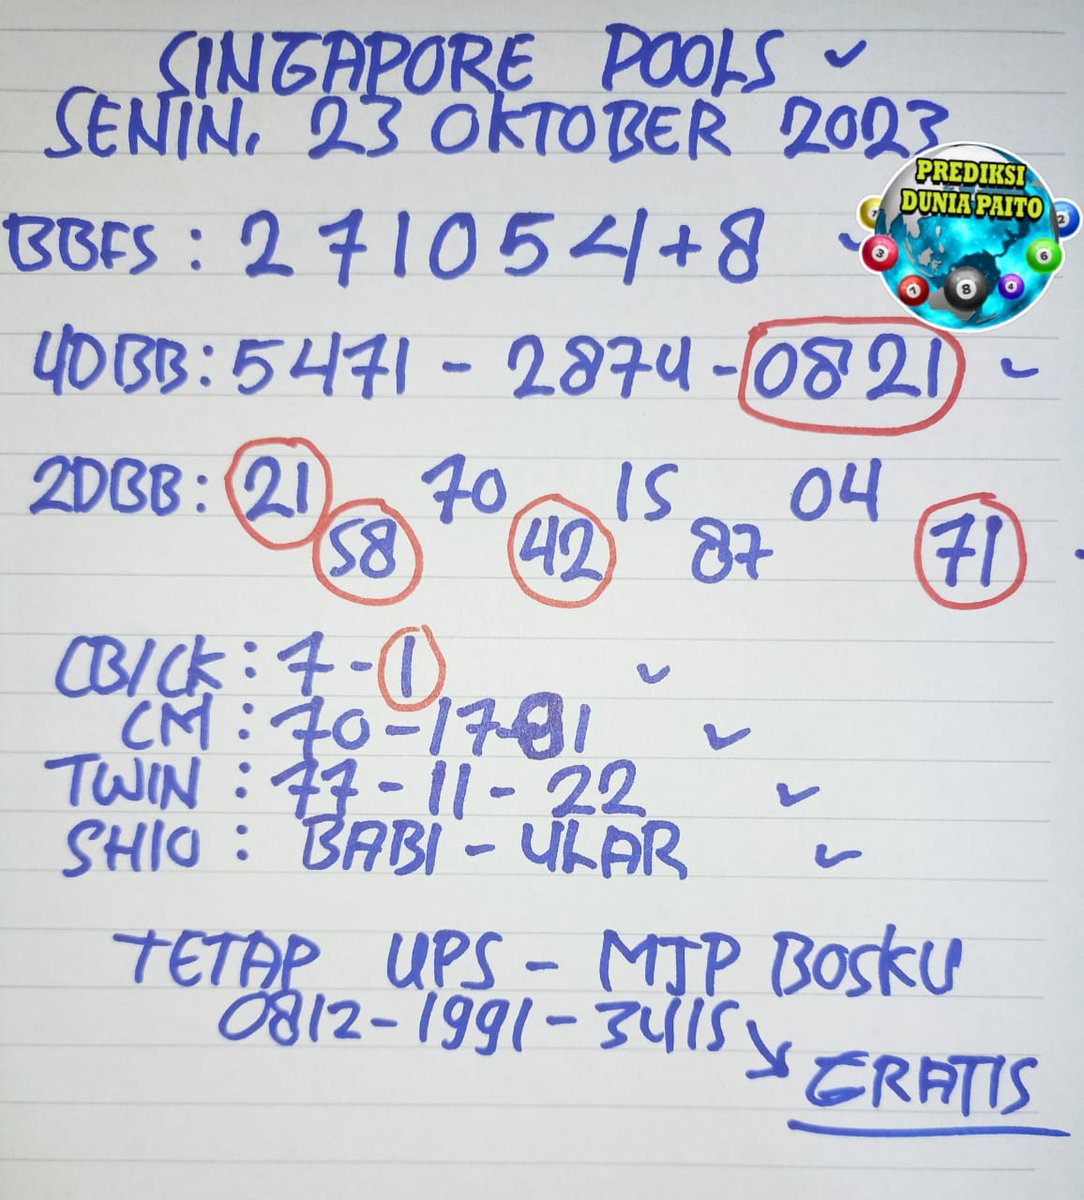 SINGAPORE POOLS
SENIN, 23 OKTOBER 2023
PREDIKSI
DUNIA PAITO
BBFS : 271054+8
4DBB : 5471 - 2874 - 0821
2DBB : 21 70 15 04
58 42 87 71
CB/CK : 7 - 1
CM : 70 - 17 - 81
TWIN : 77 - 11 - 22
SHIO : BABI - ULAR
TETAP UPS - MJP BOSKU
0812 - 1991 - 3415
GRATIS